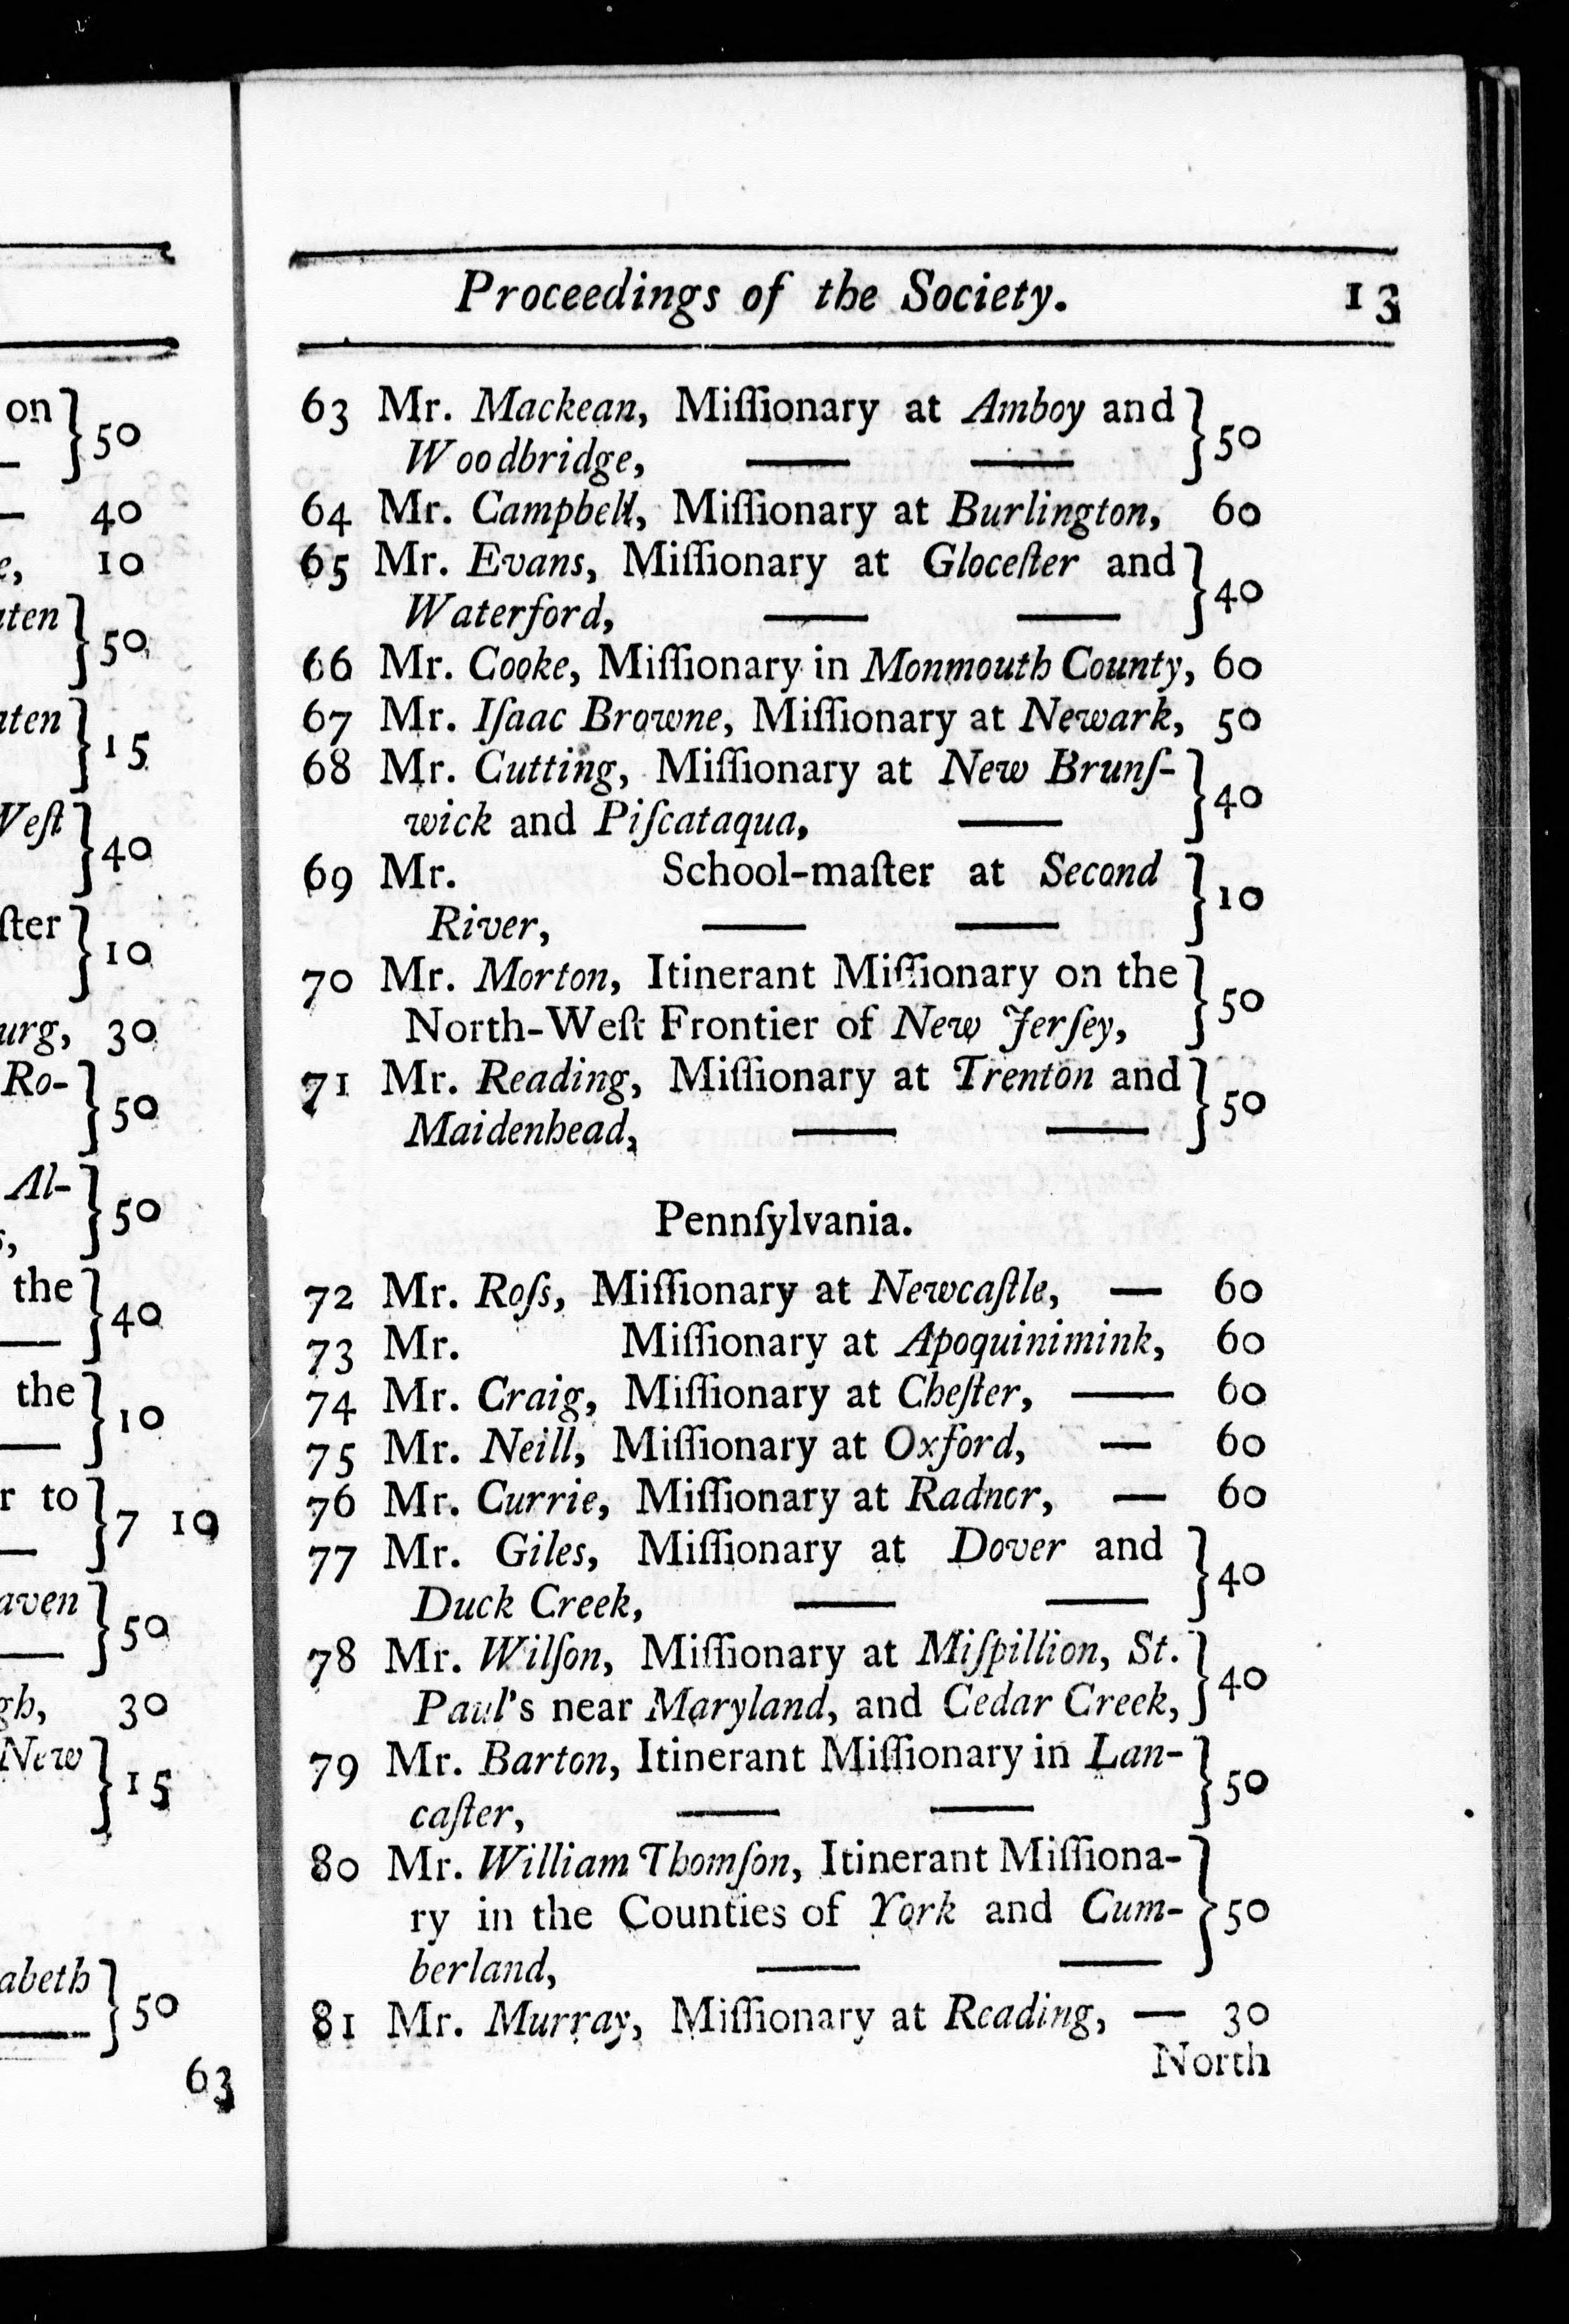 on } 50
— 40
e, 10
aten } 50
aten } 15
West } 40
ſter } 10
urg, 30
Ro- } 50
Al- } 50
s,
the } 40
the } 10
r to } 7 10
aven } 50
gh, 30
New } 15
abeth } 50
63
Proceedings of the Society. 13
63 Mr. Mackean, Miſſionary at Amboy and } 50
Woodbridge, — —
64 Mr. Campbell, Miſſionary at Burlington, 60
65 Mr. Evans, Miſſionary at Gloceſter and } 40
Waterford, — —
66 Mr. Cooke, Miſſionary in Monmouth County, 60
67 Mr. Iſaac Browne, Miſſionary at Newark, 50
68 Mr. Cutting, Miſſionary at New Brunſ- } 40
wick and Piſcataqua, —
69 Mr. School-maſter at Second } 10
River, — —
70 Mr. Morton, Itinerant Miſſionary on the } 50
North-Weſt Frontier of New Jerſey,
71 Mr. Reading, Miſſionary at Trenton and } 50
Maidenhead, — —
Pennſylvania.
72 Mr. Roſs, Miſſionary at Newcaſtle, — 60
73 Mr. Miſſionary at Apoquinimink, 60
74 Mr. Craig, Miſſionary at Cheſter, — 60
75 Mr. Neill, Miſſionary at Oxford, — 60
76 Mr. Currie, Miſſionary at Radnor, — 60
77 Mr. Giles, Miſſionary at Dover and } 40
Duck Creek, — —
78 Mr. Wilſon, Miſſionary at Miſpillion, St. } 40
Paul's near Maryland, and Cedar Creek,
79 Mr. Barton, Itinerant Miſſionary in Lan- } 50
caſter, — —
80 Mr. William Thomſon, Itinerant Miſſiona- } 50
ry in the Counties of York and Cum-
berland, — —
81 Mr. Murray, Miſſionary at Reading, — 30
North